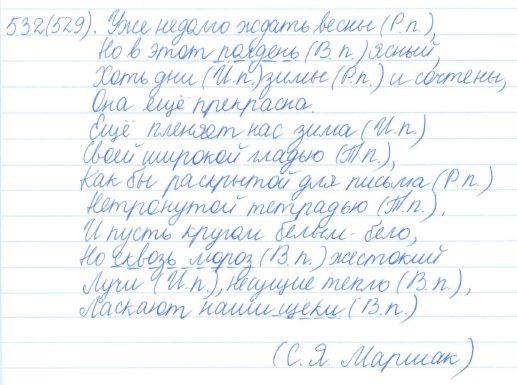 532(529). Уже недолго ждать весны (Р.п.),
Но в этот полдень (В.п.) ясный,
Хоть дни (И.п.) зимы (Р.п.) и сочтены,
Она ещё прекрасна.
Ещё пленяет нас зима (И.п.)
Своей широкой гладью (Т.п.),
Как бы раскрытой для письма (Р.п.)
Нетронутой тетрадью (Т.п.).
И пусть кругом белым-бело,
Но сквозь мороз (В.п.) жестокий
Лучи (И.п.), несущие тепло (В.п.),
Ласкают наши щеки (В.п.)
(С. Я. Маршак)